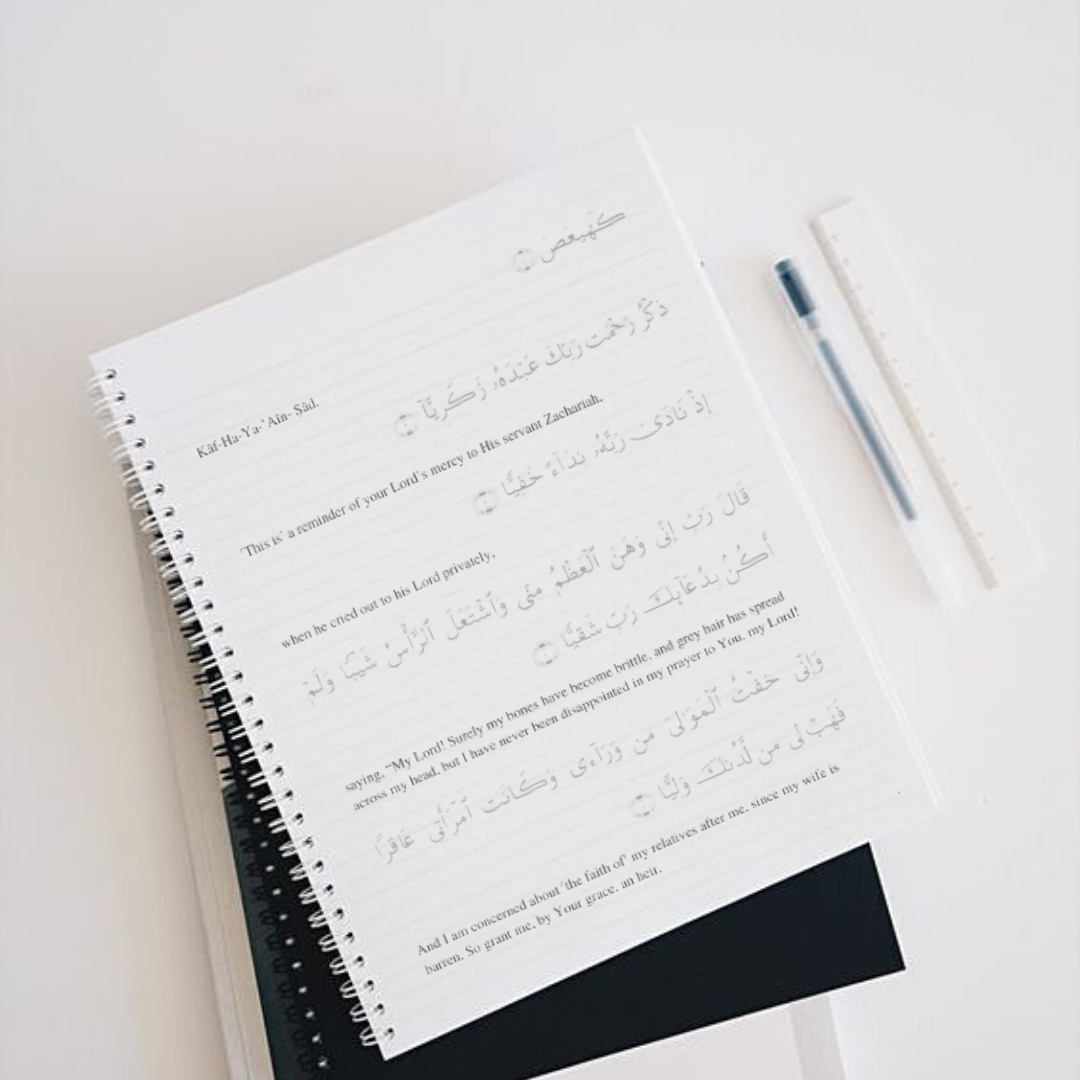 كٓهيعٓصٓ
Kãf-Ha-Ya-'Aĩn- Ṣãd.
ذِكْرُ رَحْمَتِ رَبِّكَ عَبْدَهُۥ زَكَرِيَّآ
'This is' a reminder of your Lord's mercy to His servant Zachariah,
إِذْ نَادَىٰ رَبَّهُۥ نِدَآءً خَفِيًّا
when he cried out to his Lord privately,
قَالَ رَبِّ إِنِّى وَهَنَ ٱلْعَظْمُ مِنِّى وَٱشْتَعَلَ ٱلرَّأْسُ شَيْبًا وَلَمْ
أَكُنۢ بِدُعَآئِكَ رَبِّ شَقِيًّا
saying, "My Lord! Surely my bones have become brittle, and grey hair has spread
across my head, but I have never been disappointed in my prayer to You, my Lord!
وَإِنِّى خِفْتُ ٱلْمَوَٰلِىَ مِن وَرَآءِى وَكَانَتِ ٱمْرَأَتِى عَاقِرًا
فَهَبْ لِى مِن لَّدُنكَ وَلِيًّا
And I am concerned about 'the faith of' my relatives after me, since my wife is
barren. So grant me, by Your grace, an heir,